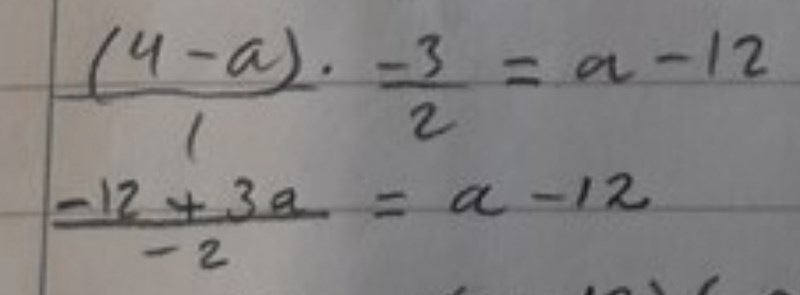 (4-a)/1 · -3/2 = a-12
-12+3a/-2 = a-12